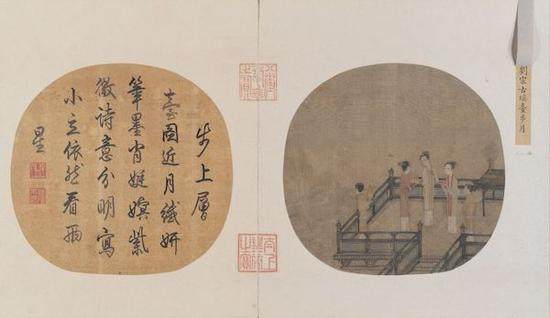 步上層
臺固近月纖妍
筆墨肖娗嫇紫
微詩意分明寫
小立依然看兩
星
劉宗古瑤臺步月